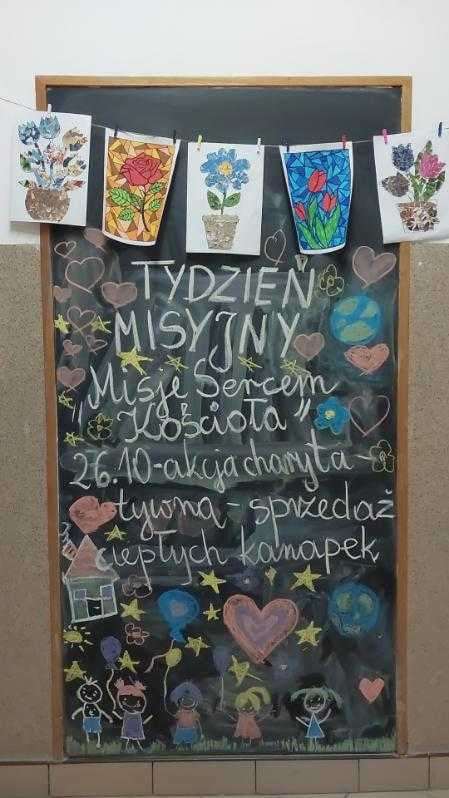 TYDZIEŃ
MISYJNY
"Misje Sercem
Kościoła"
26.10-akcja charyta-
tywną - sprzedaż
ciepłych kanapek